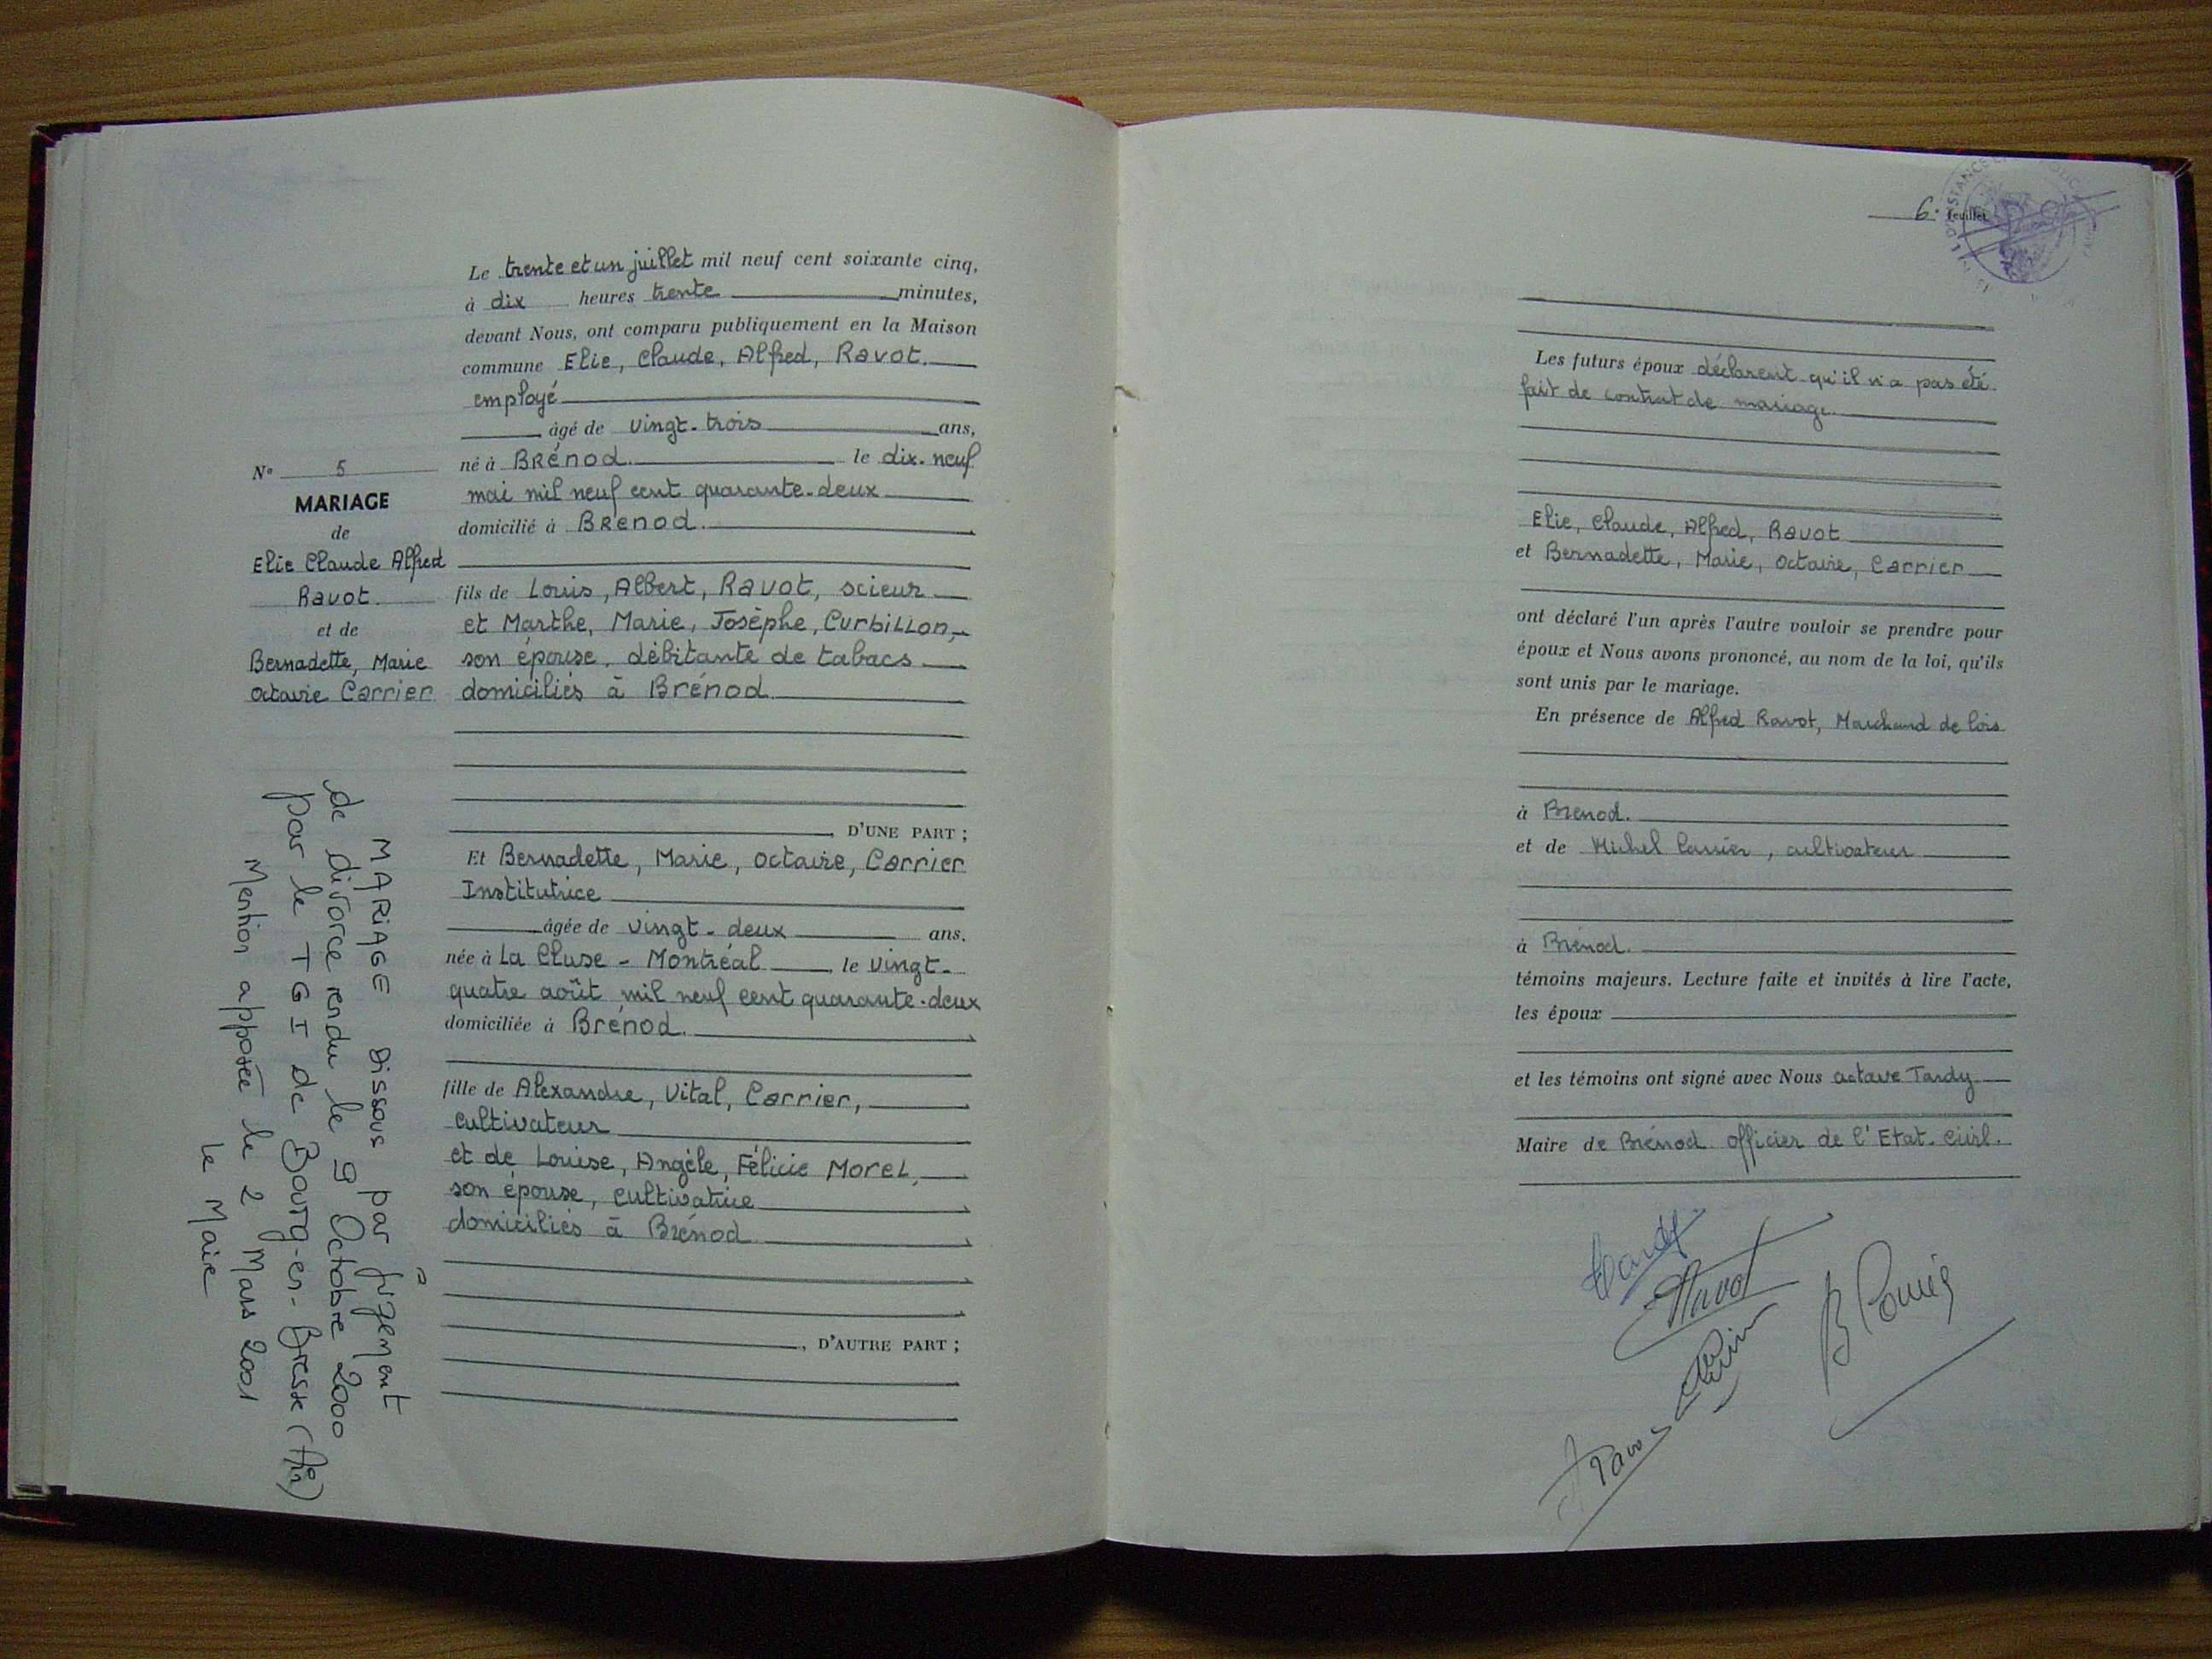 Le trente et un juillet mil neuf cent soixante cinq,
à dix heures trente minutes,
devant Nous, ont comparu publiquement en la Maison
commune Elie, Claude, Alfred, Ravot.
employé
âgé de vingt-trois ans,
né à Brénod. le dix-neuf
mai mil neuf cent quarante-deux
domicilié à Brénod.
fils de Louis, Albert, Ravot, scieur
et Marthe, Marie, Josèphe, Curbillon,
son épouse, débitante de tabacs
domiciliés à Brénod
D'UNE PART ;
Et Bernadette, Marie, Octavie, Carrier
Institutrice
âgée de vingt-deux ans.
née à La Cluse - Montréal le vingt-
quatre août mil neuf cent quarante-deux
domiciliée à Brénod.
fille de Alexandre, Vital, Carrier,
cultivateur
et de Louise, Angèle, Félicie Morel,
son épouse, cultivatrice
domiciliés à Brénod
, D'AUTRE PART ;
N° 5
MARIAGE
de
Elie Claude Alfred
Ravot.
et de
Bernadette, Marie
Octavie Carrier
MARIAGE dissous par jugement
de divorce rendu le 9 Octobre 2000
par le TGI de Bourg-en-Bresse (Ain)
Mention apposée le 2 Mars 2001
Le Maire
6. feuillet
Les futurs époux déclarent qu'il n'a pas été
fait de contrat de mariage.
Elie, Claude, Alfred, Ravot
et Bernadette, Marie, Octavie, Carrier
ont déclaré l'un après l'autre vouloir se prendre pour
époux et Nous avons prononcé, au nom de la loi, qu'ils
sont unis par le mariage.
En présence de Alfred Ravot, Marchand de bois
à Brénod.
et de Michel Carrier, cultivateur
à Brénod.
témoins majeurs. Lecture faite et invités à lire l'acte,
les époux
et les témoins ont signé avec Nous Octave Tardy
Maire de Brénod officier de l'Etat-Civil.
Tardy
Ravot
B Carrier